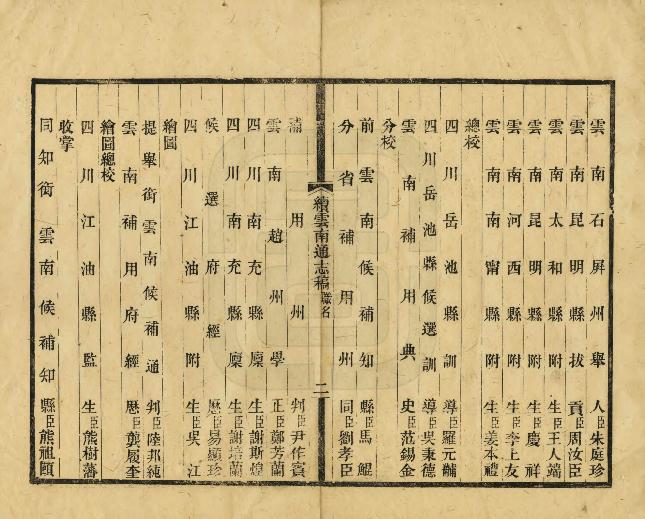 雲南石屏州舉人臣朱庭珍
雲南昆明縣拔貢臣周汝臣
雲南太和縣附生臣王人端
雲南昆明縣附生臣慶祥
雲南河西縣附生臣李上友
雲南南甯縣附生臣姜本禮
總校
四川岳池縣訓導臣羅元黼
四川岳池縣候選訓導臣吳秉德
雲南補用典史臣范錫金
分校
前雲南候補知縣臣馬鯤
分省補用州同臣劉孝臣
續雲南通志稿 職名 二
補用州判臣尹作賓
雲南趙州學正臣鄭芳蘭
四川南充縣廩生臣謝斯煌
四川南充縣廩生臣謝培蘭
候選府經歷臣易顯珍
四川江油縣附生臣吳江
繪圖
提舉銜雲南候補通判臣陸邦純
雲南補用府經歷臣龔履奎
繪圖總校
四川江油縣監生臣熊樹藩
收掌
同知銜雲南候補知縣臣熊祖頤